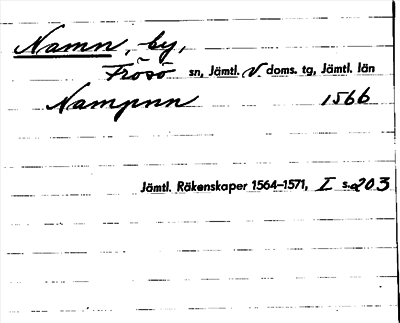 Namn, by,
Frösö sn, Jämtl. V doms. tg, Jämtl. län
Nampnn 1566
Jämtl. Räkenskaper 1564–1571, I s. 203